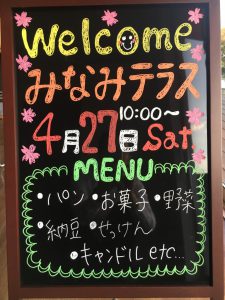 Welcome
みなみテラス
10:00～
4月27日 Sat.
MENU
・パン ・お菓子 ・野菜
・納豆 ・せっけん
・キャンドル etc...